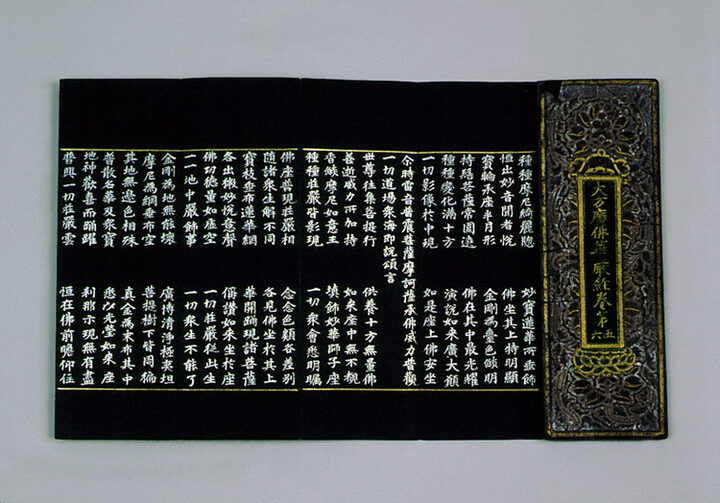 大方廣佛華嚴經卷第五六
種種摩尼綺麗窓 妙寶蓮華所垂飾
恒出妙音聞者悅 佛坐其上特明顯
寶輪承座半月形 金剛爲臺色焰明
持髻菩薩常圍遶 佛在其中最光耀
種種變化滿十方 演說如來廣大願
一切影像於中現 如是座上佛安坐
尒時雷音普震菩薩摩訶薩承佛威力普觀
一切道場衆海即說頌言
世尊往集菩提行 供養十方無量佛
善逝威力所加持 如來座中無不覩
香焰摩尼如意王 塡飾妙華師子座
種種莊嚴皆影現 一切衆會悉明矚
佛座普現莊嚴相 念念色類各差別
隨諸衆生解不同 各見佛坐於其上
寶枝垂布蓮華網 華開踊現諸菩薩
各出微妙悅意聲 稱讚如來坐於座
佛功德量如虛空 一切莊嚴從此生
一一地中嚴飾事 一切衆生不能了
金剛爲地無能壞 廣博清淨極夷坦
摩尼爲網垂布空 菩提樹下皆周徧
其地無邊色相殊 真金爲末布其中
普散名華及衆寶 悉以光瑩如來座
地神歡喜而踊躍 刹那示現無有盡
普興一切莊嚴雲 恒在佛前瞻仰住